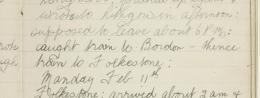 wrote to Kings in afternoon:
supposed to leave about 6 P.M:
caught train to Bordon - thence
train to Folkestone:
Monday Feb 11th
Folkestone: arrived about 2 am &